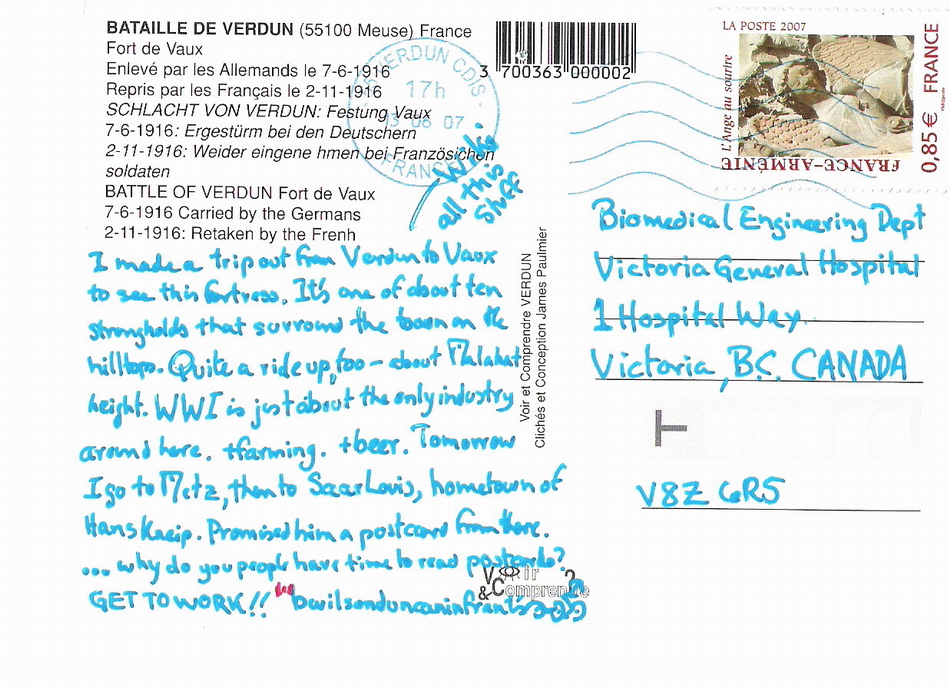 BATAILLE DE VERDUN (55100 Meuse) France
Fort de Vaux
Enlevé par les Allemands le 7-6-1916
Repris par les Français le 2-11-1916
SCHLACHT VON VERDUN: Festung Vaux
7-6-1916: Ergestürm bei den Deutschern
2-11-1916: Weider eingene hmen bei Französichen
soldaten
BATTLE OF VERDUN Fort de Vaux
7-6-1916 Carried by the Germans
2-11-1916: Retaken by the Frenh
all this
stuff
I made a trip out from Verdun to Vaux
to see this fortress. It's one of about ten
strongholds that surround the town on the
hilltops. Quite a ride up, too - about Malahat
height. WWI is just about the only industry
around here. +farming. +beer. Tomorrow
I go to Metz, then to SaarLouis, hometown of
Hans Kneip. Promised him a postcard from there.
... why do you people have time to read postcards?
GET TO WORK!!
3 700363 000002
VERDUN CDIS
17h
13 06 07
FRANCE
Voir et Comprendre VERDUN
Clichés et Conception James Paulmier
Voir
&Comprendre
LA POSTE 2007
L'Ange au sourire
FRANCE-ARMÉNIE
0,85 € FRANCE
Biomedical Engineering Dept
Victoria General Hospital
1 Hospital Way
Victoria, B.C. CANADA
T
V8Z 6R5